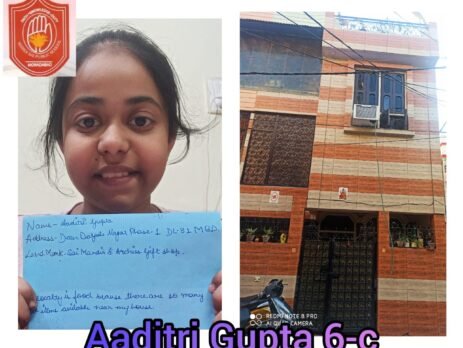 Name- Aaditri Gupta
Address- Deen Dayal Nagar Phase-1 MBD.
Land Mark- Sai Mandir & Archies gift shop.
is food because there are so many
items available near my house.
REDMI NOTE 8 PRO
AI QUAD CAMERA
Aaditri Gupta 6-c